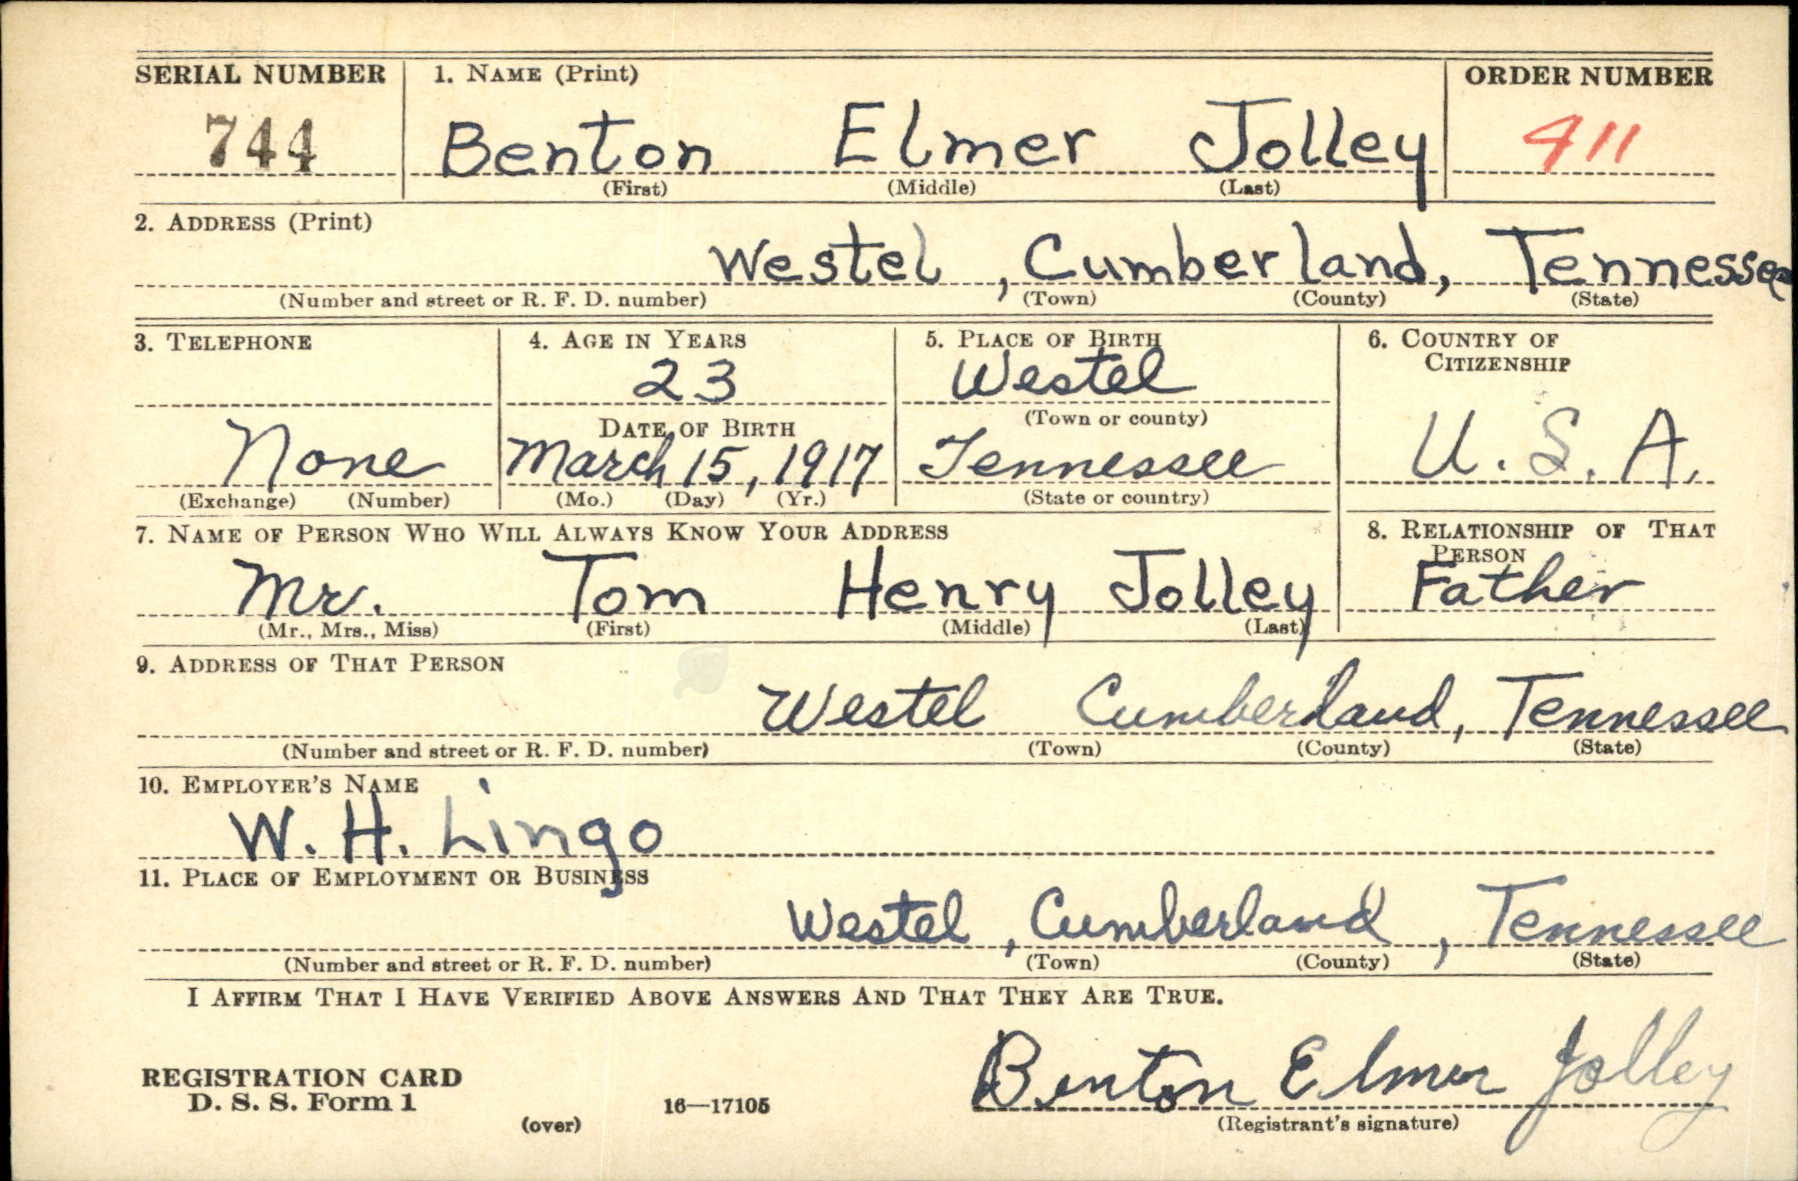 SERIAL NUMBER 1. NAME (Print) ORDER NUMBER
744 Benton Elmer Jolley 411
(First) (Middle) (Last)
2. ADDRESS (Print)
Westel, Cumberland, Tennessee
(Number and street or R. F. D. number) (Town) (County) (State)
3. TELEPHONE 4. AGE IN YEARS 5. PLACE OF BIRTH 6. COUNTRY OF
CITIZENSHIP
23 Westel
DATE OF BIRTH (Town or county)
None March 15, 1917 Tennessee U. S. A.
(Exchange) (Number) (Mo.) (Day) (Yr.) (State or country)
7. NAME OF PERSON WHO WILL ALWAYS KNOW YOUR ADDRESS 8. RELATIONSHIP OF THAT
PERSON
Mr. Tom Henry Jolley Father
(Mr., Mrs., Miss) (First) (Middle) (Last)
9. ADDRESS OF THAT PERSON
Westel Cumberland, Tennessee
(Number and street or R. F. D. number) (Town) (County) (State)
10. EMPLOYER'S NAME
W. H. Lingo
11. PLACE OF EMPLOYMENT OR BUSINESS
Westel, Cumberland, Tennessee
(Number and street or R. F. D. number) (Town) (County) (State)
I AFFIRM THAT I HAVE VERIFIED ABOVE ANSWERS AND THAT THEY ARE TRUE.
REGISTRATION CARD Benton Elmer Jolley
D. S. S. Form 1 16—17105
(over) (Registrant's signature)